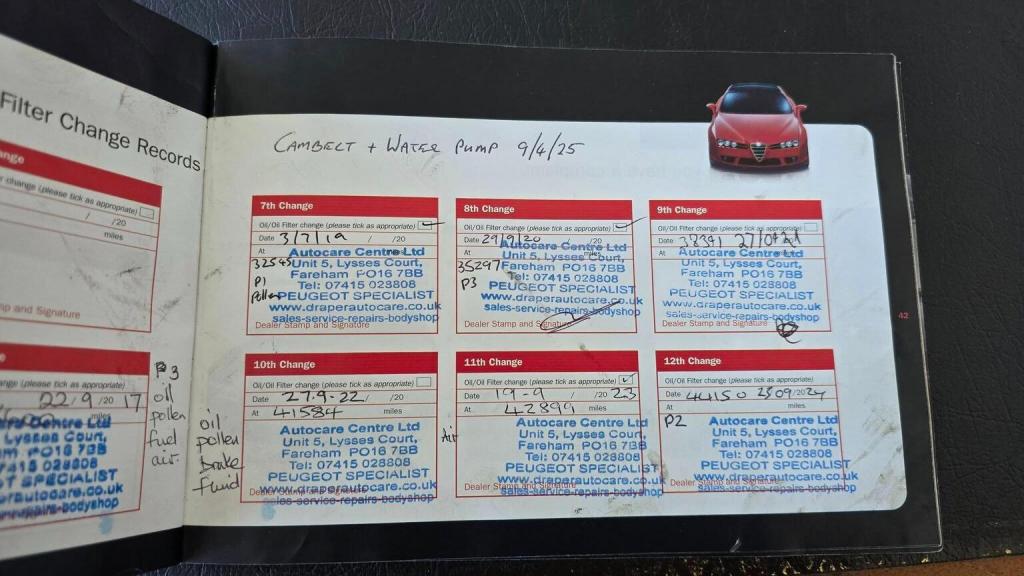 Filter Change Records
change (please tick as appropriate)
/ /20
miles
Stamp and Signature
change (please tick as appropriate)
22/9/20 17
miles
Lysses Court,
07415 028808
P3
oil
pollen
fuel
air.
CAMBELT + WATER PUMP 9/4/25
7th Change
Oil/Oil Filter change (please tick as appropriate)
Date 3/7/19 / /20
At
Autocare Centre Ltd
32545 Unit 5, Lysses Court,
Fareham PO16 7BB
P1 Tel: 07415 028808
Pollen PEUGEOT SPECIALIST
www.draperautocare.co.uk
sales-service-repairs-bodyshop
Dealer Stamp and Signature
8th Change
Oil/Oil Filter change (please tick as appropriate)
Date 29/9/20 / /20
At miles
Autocare Centre Ltd
Unit 5, Lysses Court,
35297 Fareham PO16 7BB
P3 Tel: 07415 028808
PEUGEOT SPECIALIST
www.draperautocare.co.uk
sales-service-repairs-bodyshop
Dealer Stamp and Signature
9th Change
Oil/Oil Filter change (please tick as appropriate)
Date 38391
At
Autocare Centre Ltd
Unit 5, Lysses Court,
Fareham PO16 7BB
Tel: 07415 028808
PEUGEOT SPECIALIST
www.draperautocare.co.uk
sales-service-repairs-bodyshop
Dealer Stamp and Signature
42
10th Change
Oil/Oil Filter change (please tick as appropriate)
Date 27.9.22 / /20
At 41584 miles
Autocare Centre Ltd
Unit 5, Lysses Court,
Fareham PO16 7BB
Tel: 07415 028808
PEUGEOT SPECIALIST
www.draperautocare.co.uk
Dealer Stamp and Signature
sales-service-repairs-bodyshop
oil
pollen
brake
fluid
11th Change
Oil/Oil Filter change (please tick as appropriate)
Date 19-9 / /20 23
At 42899 miles
Air
Autocare Centre Ltd
Unit 5, Lysses Court,
Fareham PO16 7BB
Tel: 07415 028808
PEUGEOT SPECIALIST
www.draperautocare.co.uk
Dealer Stamp and Signature
sales-service-repairs-bodyshop
12th Change
Oil/Oil Filter change (please tick as appropriate)
Date 44150 25/09/2024
At miles
P2
Autocare Centre Ltd
Unit 5, Lysses Court,
Fareham PO16 7BB
Tel: 07415 028808
PEUGEOT SPECIALIST
www.draperautocare.co.uk
Dealer Stamp and Signature
sales-service-repairs-bodyshop